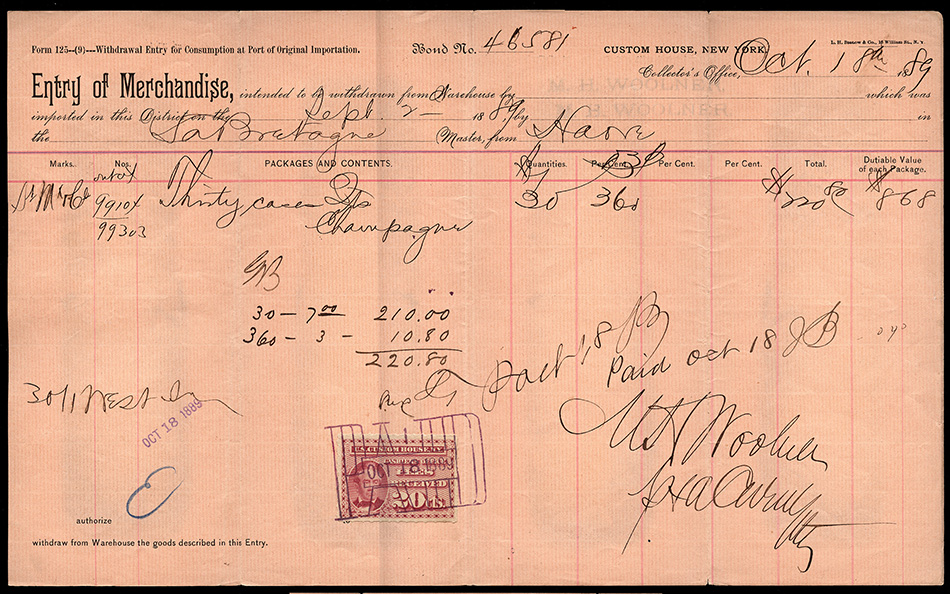 Form 125--(9)---Withdrawal Entry for Consumption at Port of Original Importation.
Bond No. 46581
CUSTOM HOUSE, NEW YORK,
Collector's Office, Oct. 18th 1889
Entry of Merchandise, intended to be withdrawn from Warehouse by which was
imported in this District on the Sept. 2 1889, by in
the La Bretagne Master, from Havre
Marks. Nos. PACKAGES AND CONTENTS. Quantities. Per Cent. Per Cent. Per Cent. Total. Dutiable Value of each Package.
out of
99104 Thirty cases Qts 30 360 $220 80 $868
99303 Champagne
30 — 7 00 210.00
360 - 3 - 10.80
220.80
Paid Oct 18 JB
OCT 18 1889
U.S. CUSTOM HOUSE N.Y.
OCT 18 1889
RECEIVED
20 cts.
authorize
withdraw from Warehouse the goods described in this Entry.